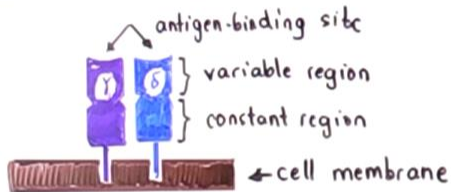 antigen-binding site
γ δ } variable region
} constant region
←cell membrane